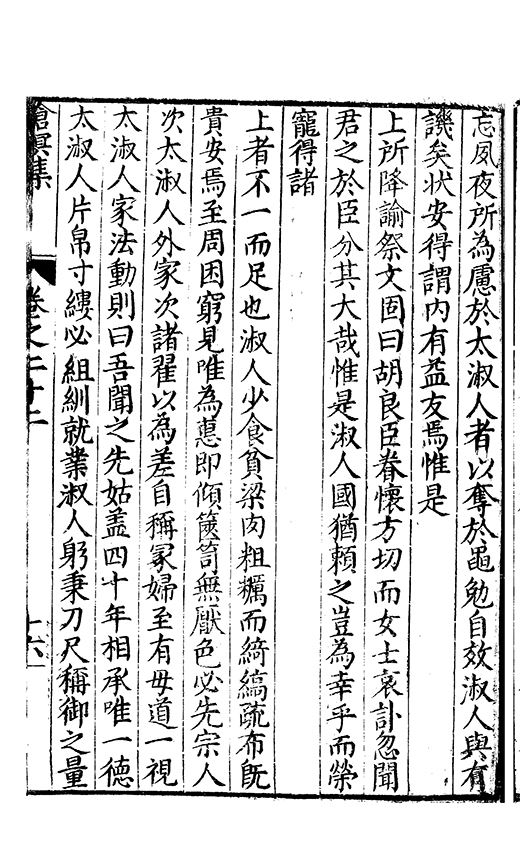 忘夙夜所為慮於太淑人者以奪於黽勉自效淑人與有
譏矣狀安得謂內有益友焉惟是
上所降諭祭文固曰胡良臣眷懷方切而女士哀訃忽聞
君之於臣分其大哉惟是淑人國猶賴之豈為幸乎而榮
寵得諸
上者不一而足也淑人少食貧梁肉粗糲而綺縞疏布旣
貴安焉至周困窮見唯為惠即傾篋笥無厭色必先宗人
次太淑人外家次諸翟以為差自稱冢婦至有毋道一視
太淑人家法動則曰吾聞之先姑盖四十年相承唯一德
太淑人片帛寸縷必組紃就業淑人躬秉刀尺稱御之量
滄溟集
卷之二十二
十六